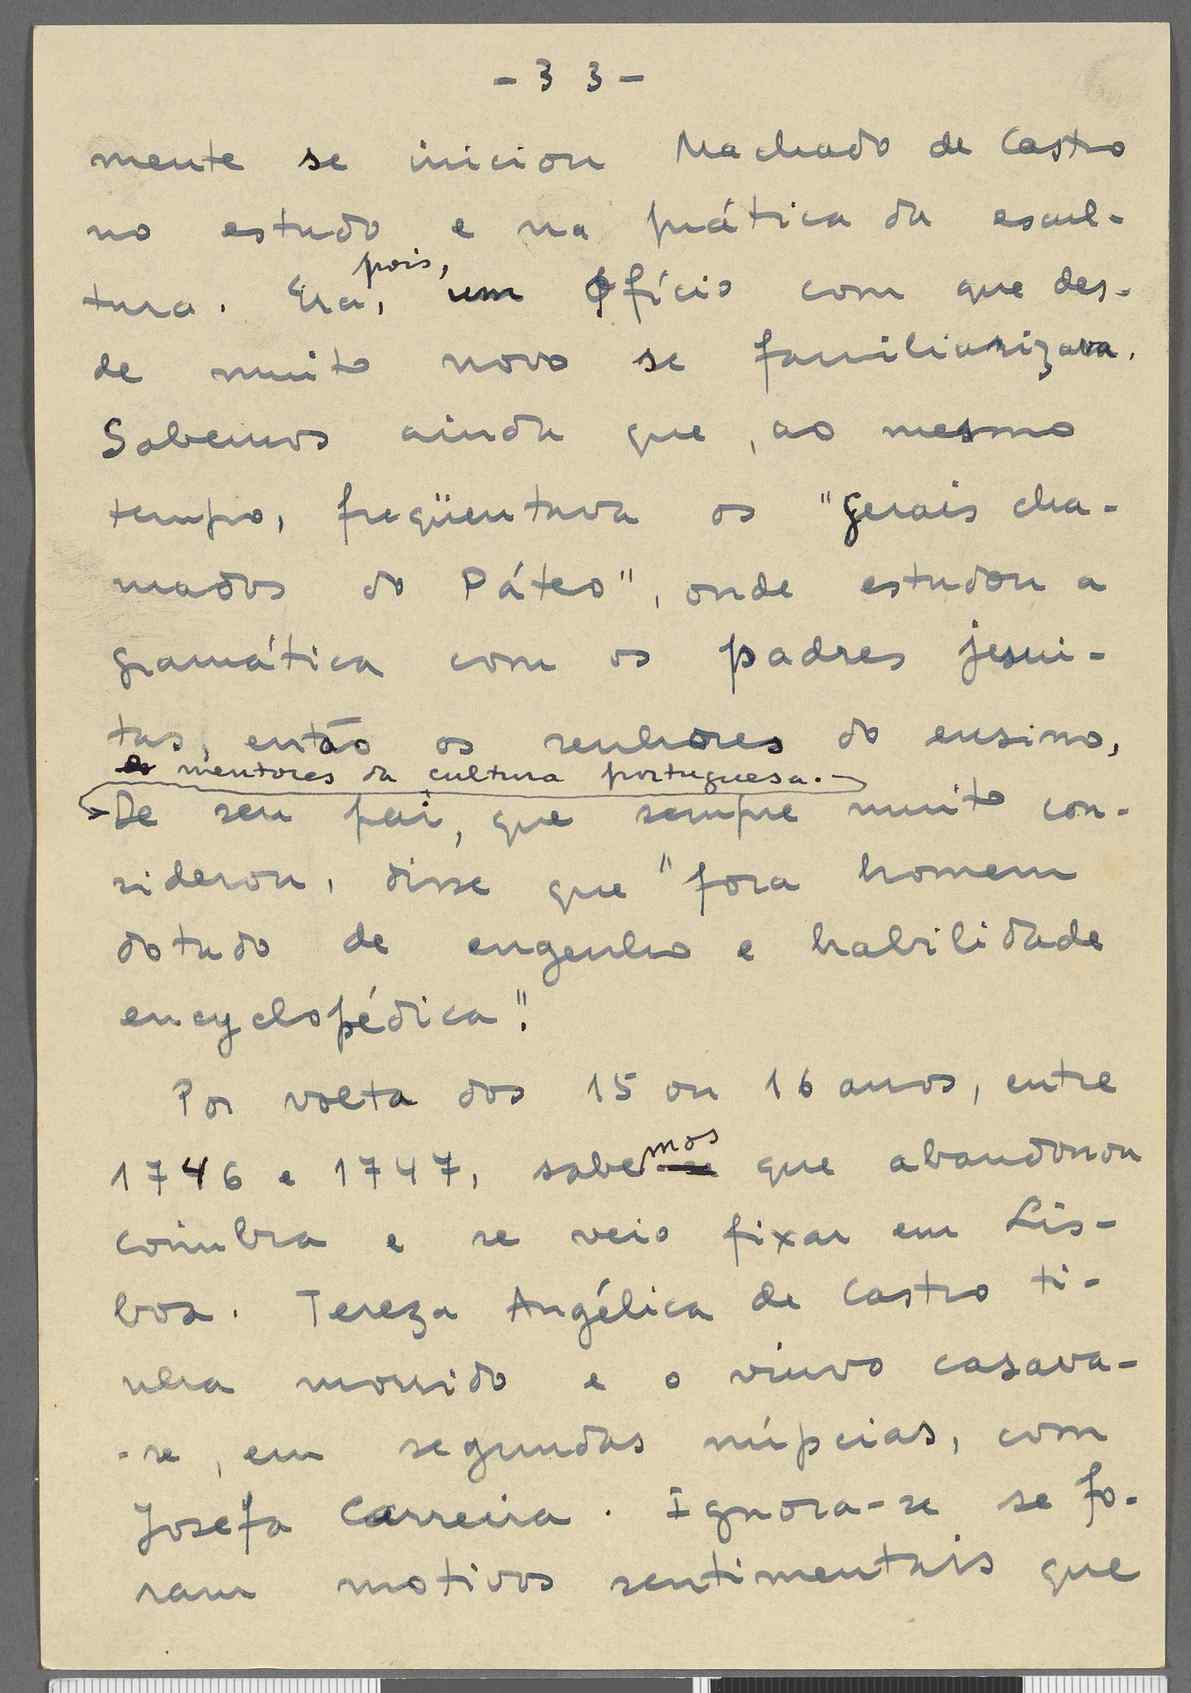 - 3 3 -
mente se iniciou Machado de Castro
no estudo e na prática da escul-
pois,
tura. Era, um ofício com que des-
de muito novo se familiarizava.
Sabemos ainda que, ao mesmo
tempo, freqüentava os "gerais cha-
mados do Páteo", onde estudou a
gramática com os padres jesui-
tas, então os senhores do ensino,
os mentores da cultura portuguesa.
De seu pai, que sempre muito con-
siderou, disse que "fora homem
dotado de engenho e habilidade
encyclopédica".
Por volta dos 15 ou 16 anos, entre
mos
1746 e 1747, sabe-se que abandonou
Coimbra e se veio fixar em Lis-
boa. Tereza Angélica de Castro ti-
nha morrido e o viuvo casava-
-se, em segundas núpcias, com
Josefa Carreira. Ignora-se se fo-
ram motivos sentimentais que